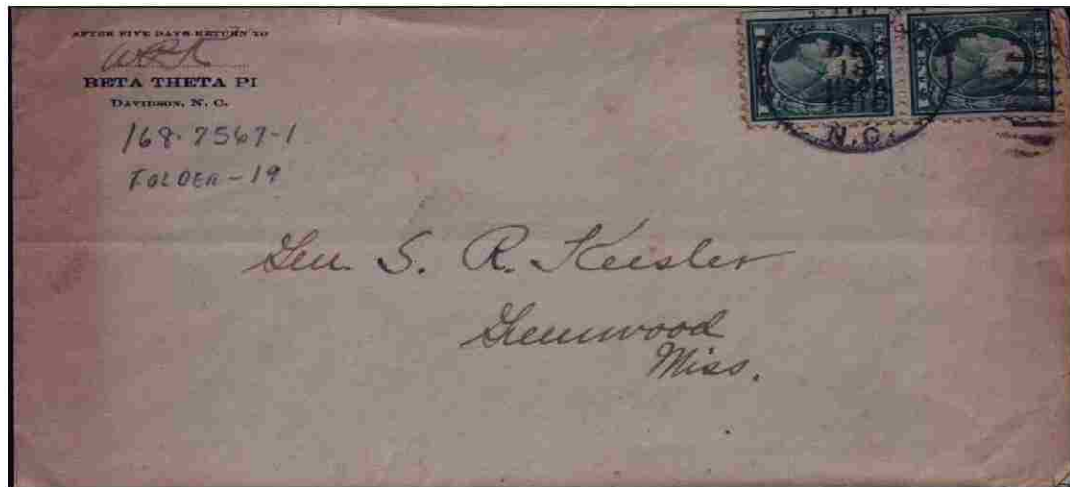 AFTER FIVE DAYS RETURN TO
BETA THETA PI
DAVIDSON, N. C.
168.7567-1
FOLDER-19
Gen. S. R. Keesler
Greenwood
Miss.
N.C.